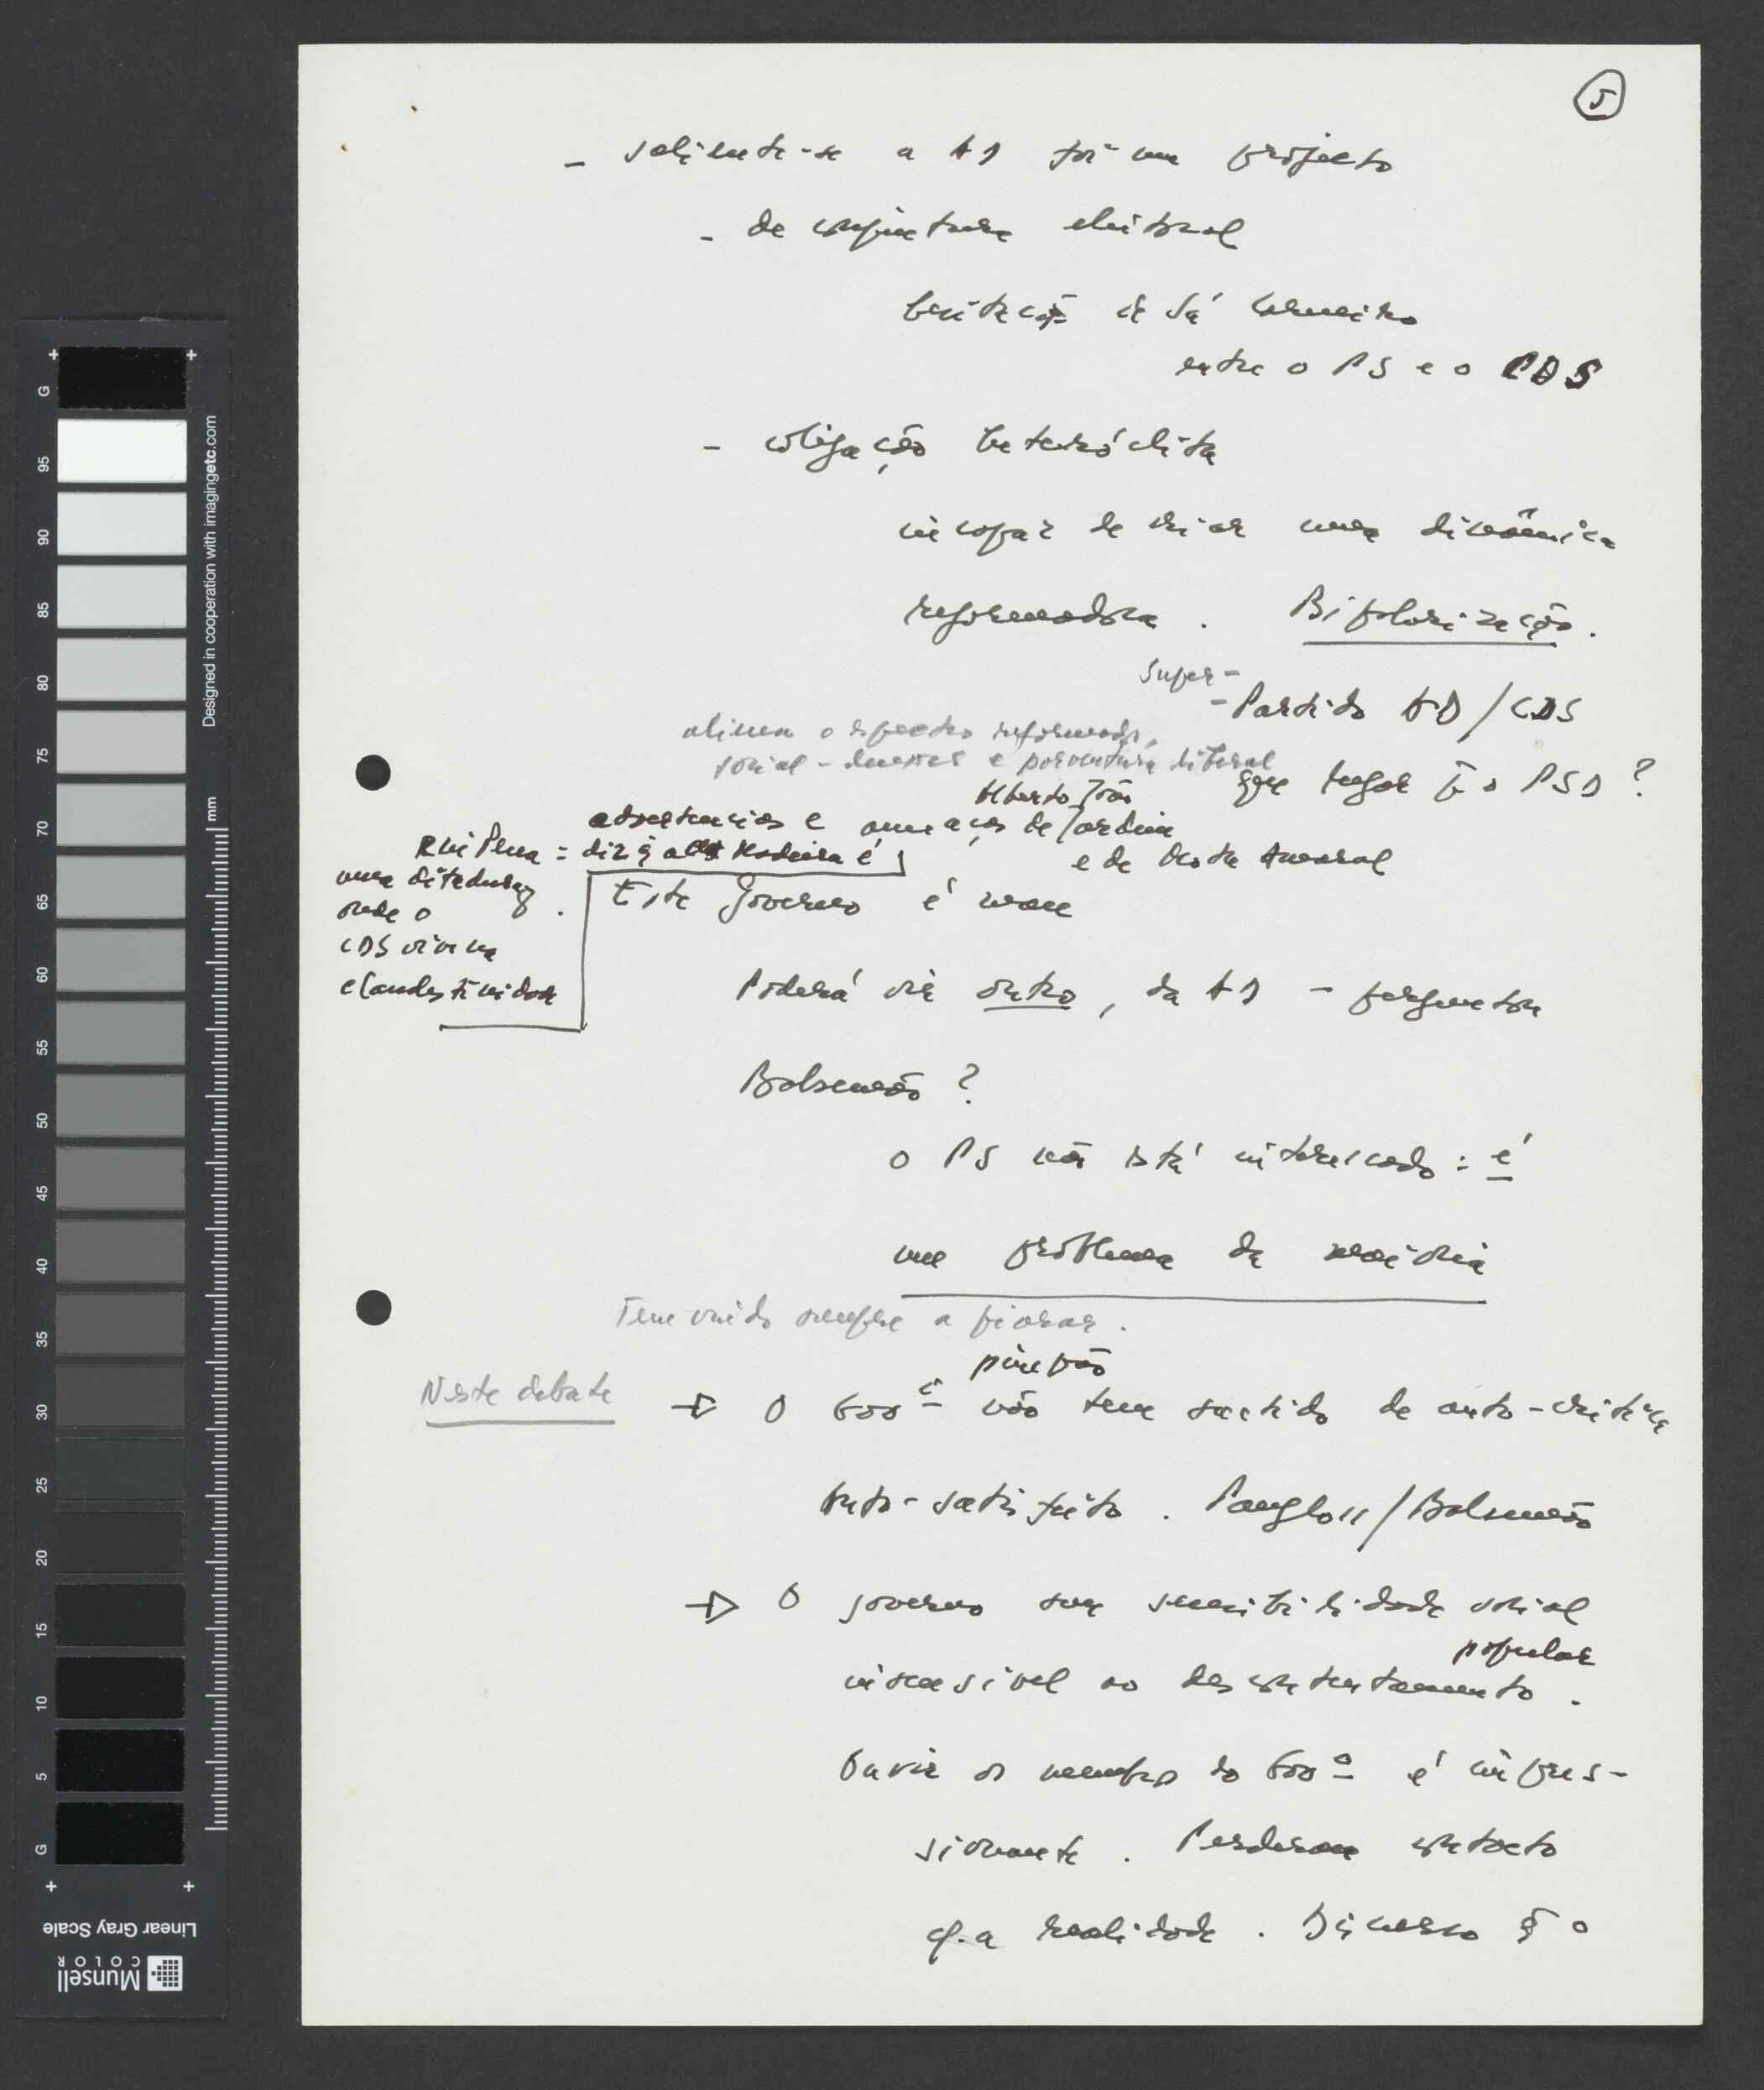 5
- saliente-se a AD foi um projecto
- de conjuntura eleitoral
hesitação de Sá Carneiro
entre o PS e o CDS
- coligação heteróclita
incapaz de criar uma dinâmica
reformadora. Bipolarização.
Super-
- Partido AD/CDS
o espectro reformador,
social-democrata e porventura liberal
Que lugar p/ o PSD?
Alberto João
advertências e ameaças de Jardim
e de Mota Amaral
Rui Pena = diz q a Madeira é
uma ditadura
onde o
CDS vive na
clandestinidade
Este Governo é mau
Poderá vir outro, da AD - pergunta
Balsemão?
o PS não está interessado: é
um problema da maioria
Tem vindo sempre a piorar.
Neste debate
O Govº não tem sentido de auto-crítica
Auto-satisfeito. Pangloss/Balsemão
O governo sem sensibilidade social
popular
insensível ao descontentamento.
Ouvir os membros do Govº é impres-
sionante. Perderam contacto
c/ a realidade. Discurso o